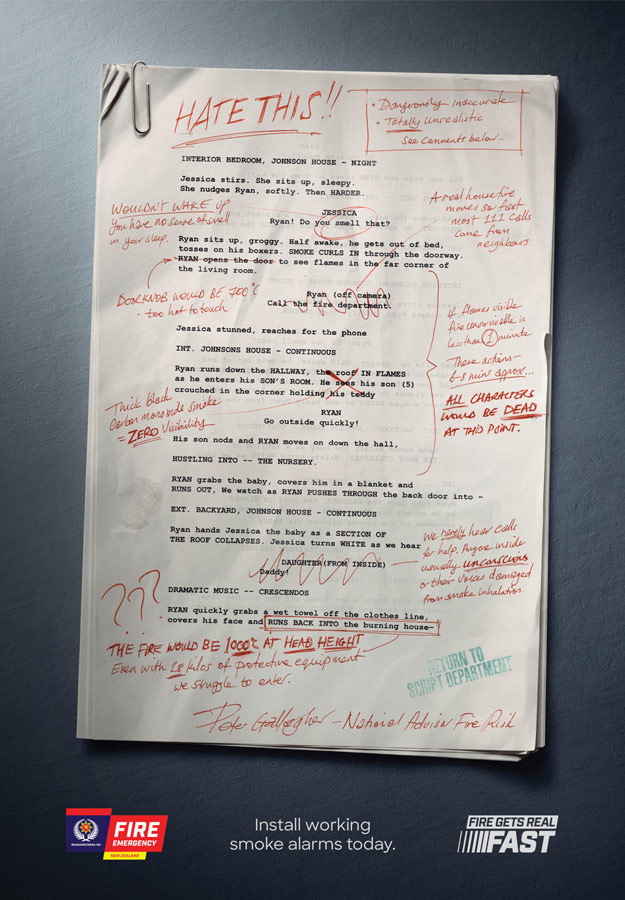 HATE THIS!!
• Dangerously Inaccurate
• Totally Unrealistic
See Comments below—
INTERIOR BEDROOM, JOHNSON HOUSE – NIGHT
Jessica stirs. She sits up, sleepy.
She nudges Ryan, softly. Then HARDER.
WOULDN'T WAKE UP
you have no sense of smell
in your sleep.
JESSICA
Ryan! Do you smell that?
A real house fire
moves so fast
most 111 calls
come from
neighbours
Ryan sits up, groggy. Half awake, he gets out of bed,
tosses on his boxers. SMOKE CURLS IN through the doorway.
RYAN opens the door to see flames in the far corner of
the living room.
DOORKNOB WOULD BE 700°C
- too hot to touch
Ryan (off camera)
Call the fire department
Jessica stunned, reaches for the phone
If flames visible
fire unsurvivable in
less than 1 minute
These actions –
6-8 mins approx...
ALL CHARACTERS
WOULD BE DEAD
AT THIS POINT.
INT. JOHNSONS HOUSE - CONTINUOUS
Ryan runs down the HALLWAY, the roof IN FLAMES
as he enters his SON'S ROOM. He sees his son (5)
crouched in the corner holding his teddy
Thick black
Carbon monoxide smoke
= ZERO Visibility
RYAN
Go outside quickly!
His son nods and RYAN moves on down the hall,
HUSTLING INTO -- THE NURSERY.
RYAN grabs the baby, covers him in a blanket and
RUNS OUT, We watch as RYAN PUSHES THROUGH the back door into –
EXT. BACKYARD, JOHNSON HOUSE - CONTINUOUS
Ryan hands Jessica the baby as a SECTION OF
THE ROOF COLLAPSES. Jessica turns WHITE as we hear
DAUGHTER(FROM INSIDE)
Daddy!
We rarely hear calls
for help. Anyone inside
usually unconscious
or their voices damaged
from smoke inhalation.
???
DRAMATIC MUSIC -- CRESCENDOS
RYAN quickly grabs a wet towel off the clothes line,
covers his face and RUNS BACK INTO the burning house—
THE FIRE WOULD BE 1000°C AT HEAD HEIGHT
Even with 28 kilos of protective equipment
we struggle to enter.
RETURN TO
SCRIPT DEPARTMENT
Peter Gallagher – National Advisor Fire Risk
FIRE
EMERGENCY
NEW ZEALAND
Install working
smoke alarms today.
FIRE GETS REAL
FAST